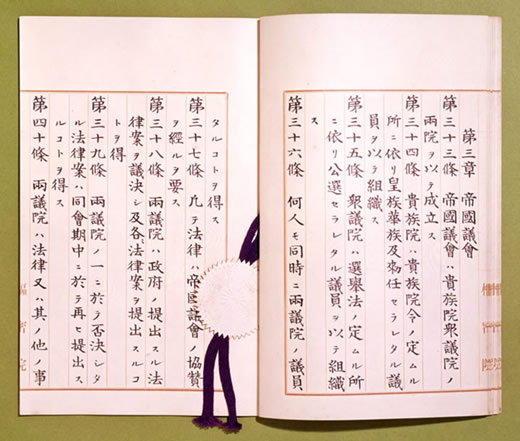 第三章 帝國議會
第三十三條 帝國議會ハ貴族院衆議院ノ
兩院ヲ以テ成立ス
第三十四條 貴族院ハ貴族院令ノ定ムル
所ニ依リ皇族華族及勅任セラレタル議
員ヲ以テ組織ス
第三十五條 衆議院ハ選擧法ノ定ムル所
ニ依リ公選セラレタル議員ヲ以テ組織
ス
第三十六條 何人モ同時ニ兩議院ノ議員
タルコトヲ得ス
第三十七條 凡テ法律ハ帝國議會ノ協贊
ヲ經ルヲ要ス
第三十八條 兩議院ハ政府ノ提出スル法
律案ヲ議決シ及各〻法律案ヲ提出スルコ
トヲ得
第三十九條 兩議院ノ一ニ於テ否決シタ
ル法律案ハ同會期中ニ於テ再ヒ提出ス
ルコトヲ得ス
第四十條 兩議院ハ法律又ハ其ノ他ノ事